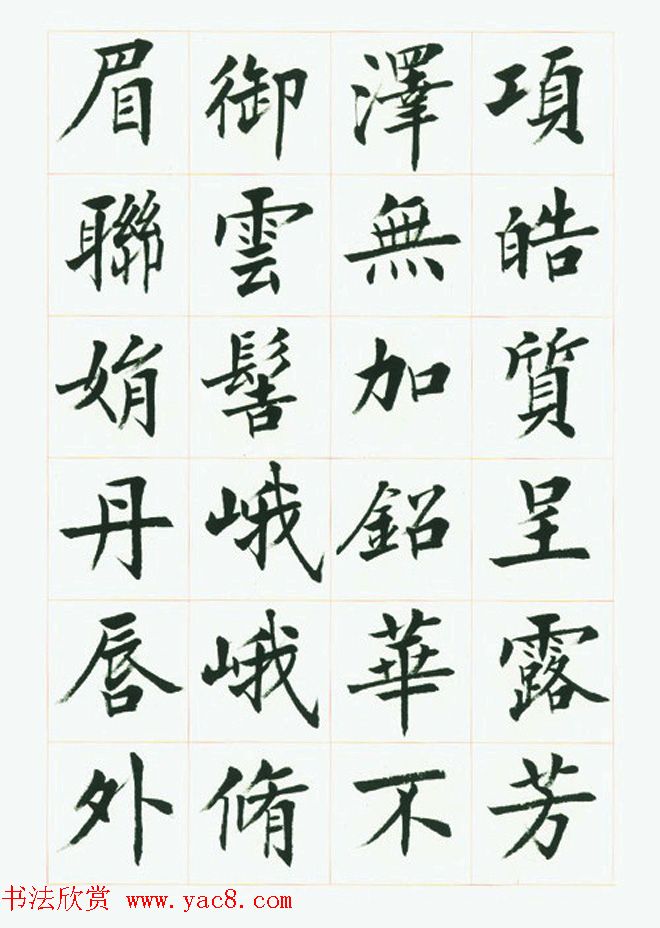 項皓質呈露芳
澤無加鉛華不
御雲髻峨峨脩
眉聯娟丹唇外
书法欣赏 www.yac8.com